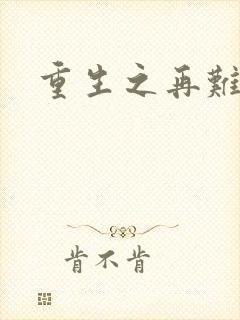 重生之再難
肯不肯